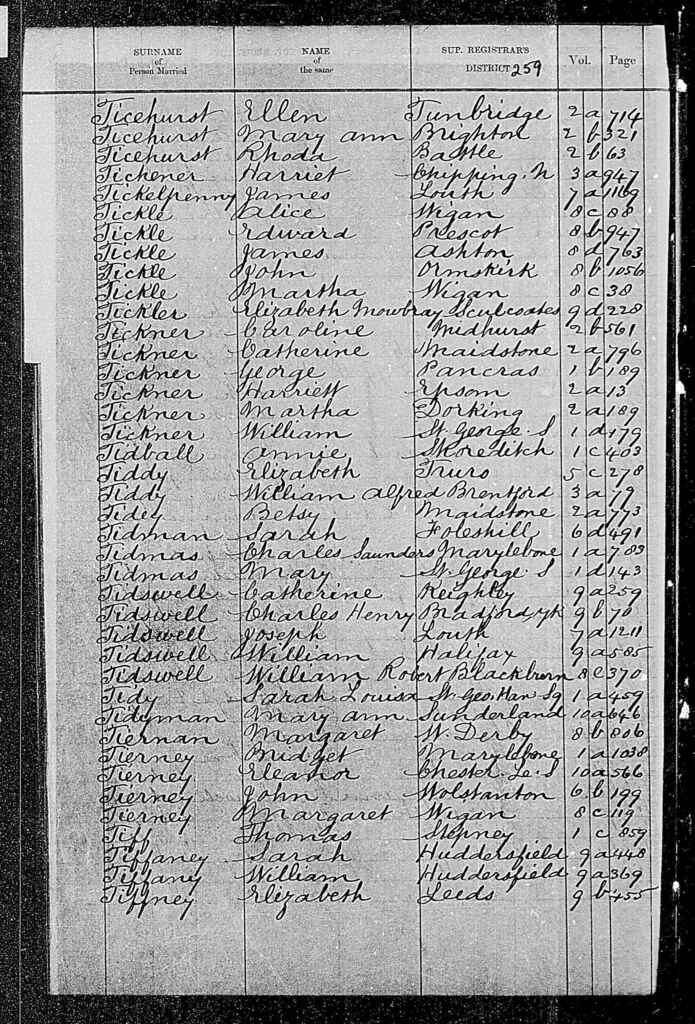 SURNAME of Person Married NAME of the same SUP. REGISTRAR'S DISTRICT 259 Vol. Page
Ticehurst Ellen Tunbridge 2 a 714
Ticehurst Mary Ann Brighton 2 b 321
Ticehurst Rhoda Battle 2 b 63
Tichener Harriet Chipping. N 3 a 947
Tickelpenny James Louth 7 a 1169
Tickle Alice Wigan 8 c 88
Tickle Edward Prescot 8 b 947
Tickle James Ashton 8 d 763
Tickle John Ormskirk 8 b 1056
Tickle Martha Wigan 8 c 38
Tickler Elizabeth Mowbray Sculcoates 9 d 228
Tickner Caroline Midhurst 2 b 561
Tickner Catherine Maidstone 2 a 796
Tickner George Pancras 1 b 189
Tickner Harriett Epsom 2 a 13
Tickner Martha Dorking 2 a 189
Tickner William St. George. S 1 d 179
Tidball Annie Shoreditch 1 c 403
Tiddy Elizabeth Truro 5 c 278
Tiddy William Alfred Brentford 3 a 79
Tidey Betsy Maidstone 2 a 773
Tidman Sarah Foleshill 6 d 491
Tidmas Charles Saunders Marylebone 1 a 783
Tidmas Mary St. George. S 1 d 143
Tidswell Catherine Keighley 9 a 259
Tidswell Charles Henry Bradford, yk 9 b 70
Tidswell Joseph Louth 7 a 1211
Tidswell William Halifax 9 a 585
Tidswell William Robert Blackburn 8 e 370
Tidy Sarah Louisa St. Geo. Han. Sq 1 a 459
Tidyman Mary Ann Sunderland 10 a 646
Tiernan Margaret W. Derby 8 b 806
Tierney Bridget Marylebone 1 a 1038
Tierney Eleanor Chester. Le. S 10 a 566
Tierney John Wolstanton 6 b 199
Tierney Margaret Wigan 8 c 119
Tiff Thomas Stepney 1 c 859
Tiffaney Sarah Huddersfield 9 a 448
Tiffany William Huddersfield 9 a 369
Tiffney Elizabeth Leeds 9 b 455